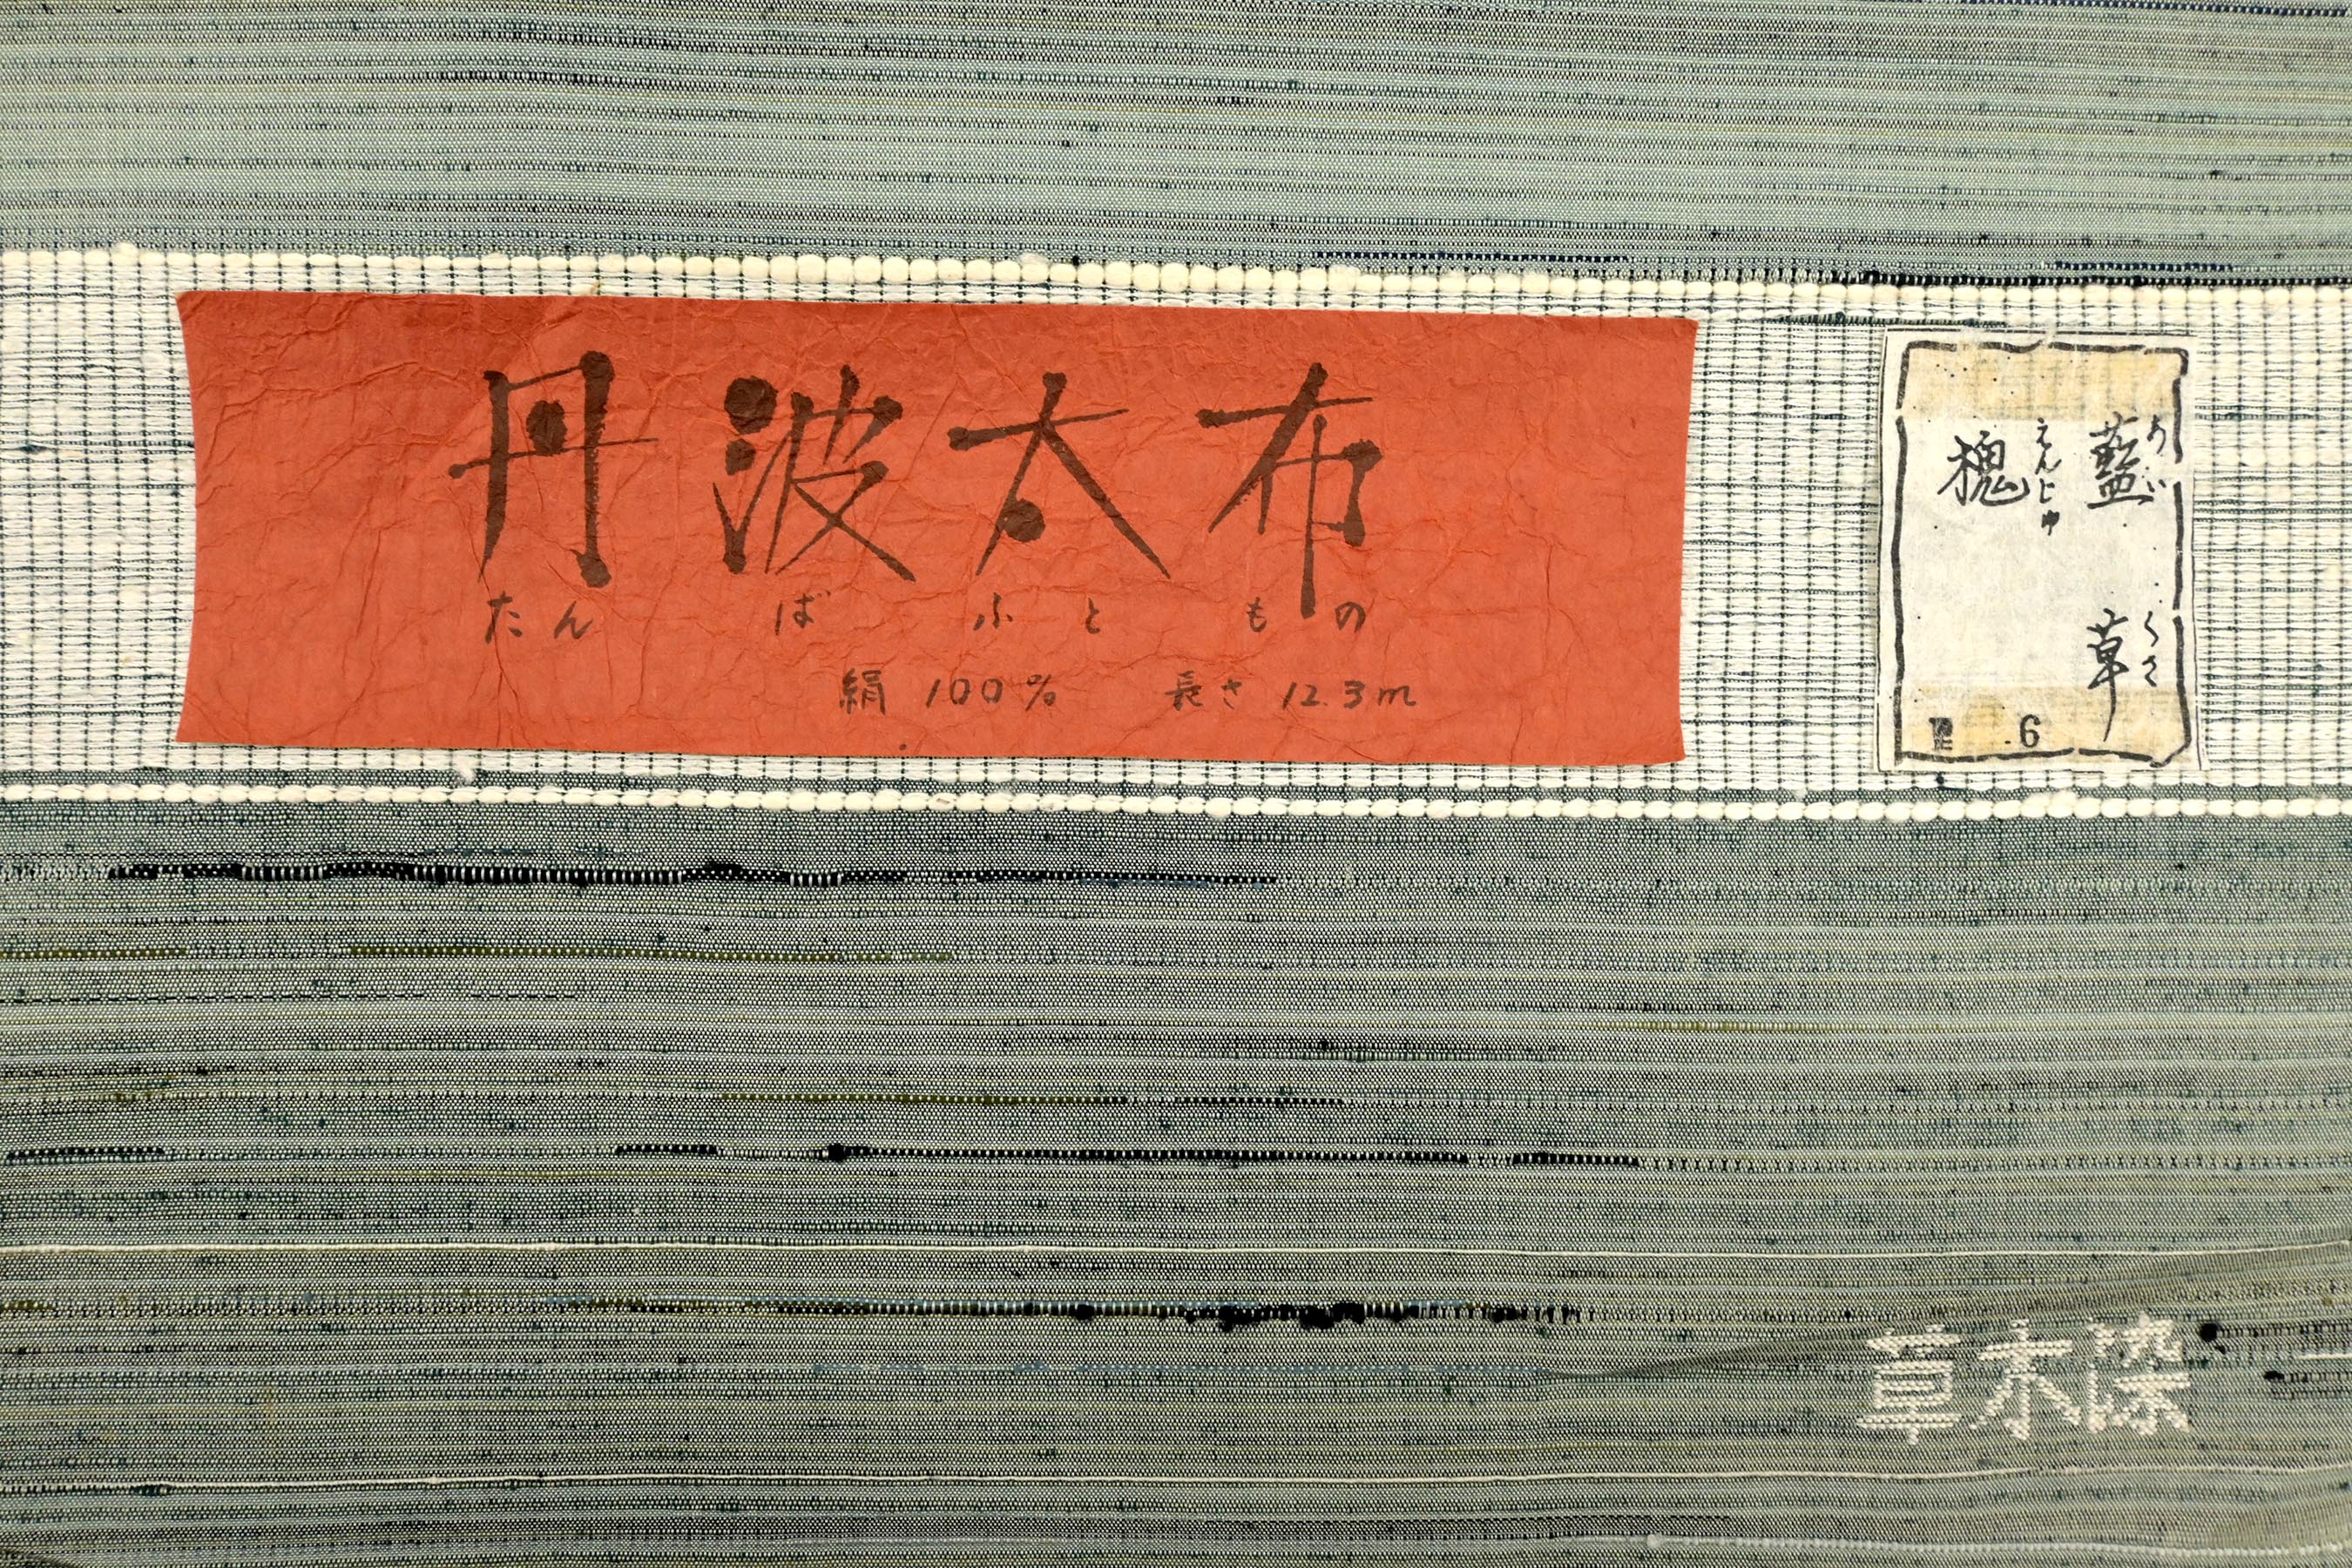 丹波太布
たんばふともの
絹 100% 長さ 12.3m
藍 草
あい くさ
槐
えんじゅ
6
草木染